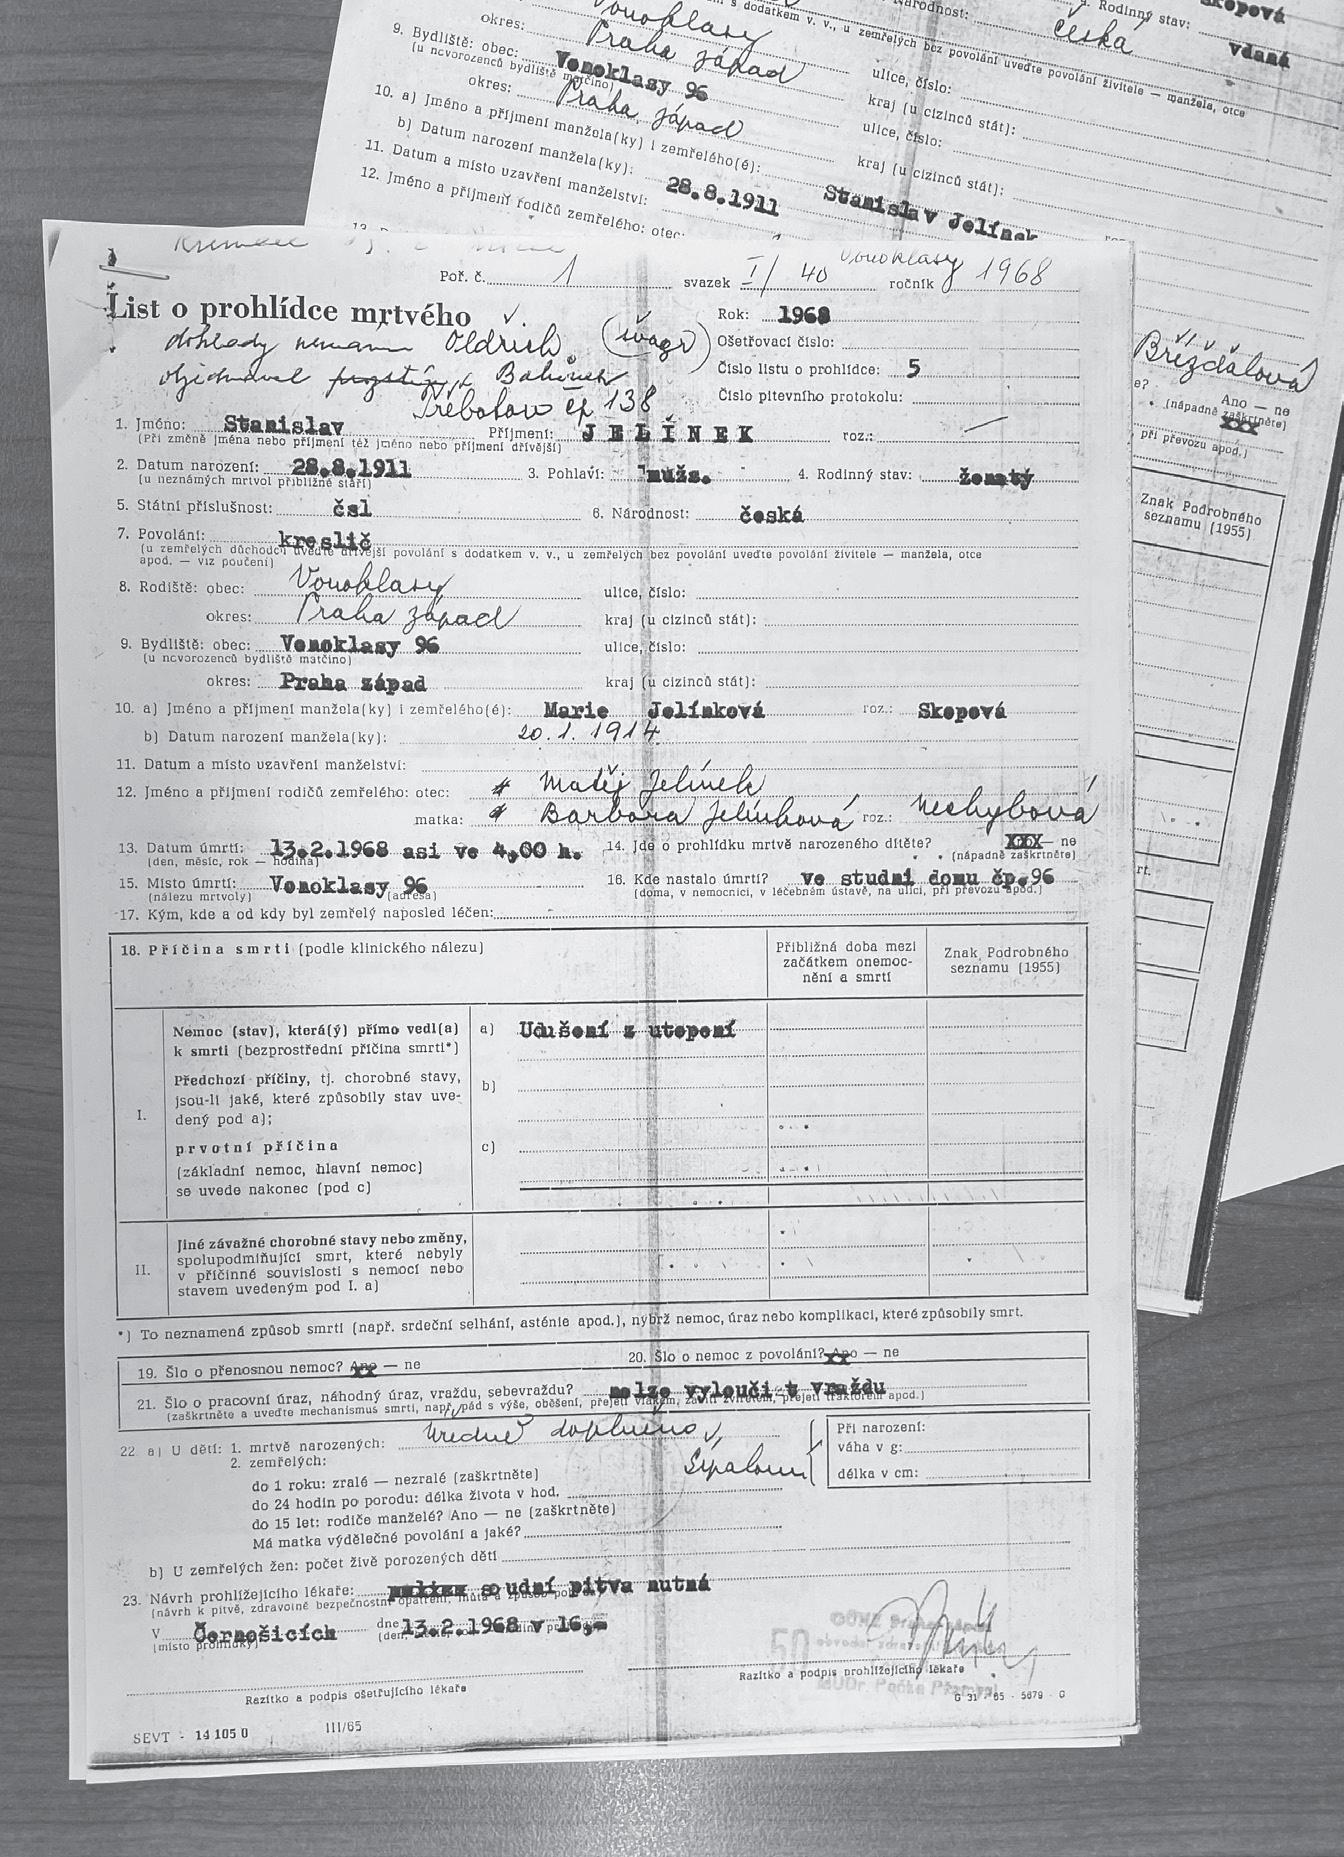 s dodatkem v. v., u zemřelých bez povolání uveďte povolání živitele — manžela, otce
Národnost: česká
Rodinný stav: vdaná
Skopová
Vonoklasy
okres: Praha západ
ulice, číslo:
9. Bydliště: obec: Vonoklasy 96
(u novorozenců bydliště matčino)
kraj (u cizinců stát):
okres: Praha západ
ulice, číslo:
10. a) Jméno a příjmení manžela(ky) i zemřelého(é): Stanislav Jelínek
kraj (u cizinců stát):
b) Datum narození manžela(ky): 28.8.1911
11. Datum a místo uzavření manželství:
12. Jméno a příjmení rodičů zemřelého: otec:
Břížďalová
Ano — ne
(nápadně zaškrtněte)
při převozu apod.)
Znak Podrobného
seznamu (1955)
Poř. č. 1 svazek I/40 Vonoklasy ročník 1968
List o prohlídce mrtvého
Rok: 1968
Oldřich (švagr)
Ošetřovací číslo:
Číslo listu o prohlídce: 5
Číslo pitevního protokolu:
čp 138
1. Jméno: Stanislav Příjmení: JELÍNEK roz.: —
(Při změně jména nebo příjmení též jméno nebo příjmení dřívější)
2. Datum narození: 28.8.1911 3. Pohlaví: mužs. 4. Rodinný stav: ženatý
(u neznámých mrtvol přibližné stáří)
5. Státní příslušnost: čsl 6. Národnost: česká
7. Povolání: kreslič
(u zemřelých důchodců uveďte dřívější povolání s dodatkem v. v., u zemřelých bez povolání uveďte povolání živitele — manžela, otce
apod. — viz poučení)
8. Rodiště: obec: Vonoklasy ulice, číslo:
okres: Praha západ kraj (u cizinců stát):
9. Bydliště: obec: Vonoklasy 96 ulice, číslo:
(u novorozenců bydliště matčino)
okres: Praha západ kraj (u cizinců stát):
10. a) Jméno a příjmení manžela(ky) i zemřelého(é): Marie Jelínková roz.: Skopová
b) Datum narození manžela(ky): 20.1.1914
11. Datum a místo uzavření manželství:
12. Jméno a příjmení rodičů zemřelého: otec: Matěj Jelínek
matka: Barbora Jelínková roz.: Nechybová
13. Datum úmrtí: 13.2.1968 asi ve 4,00 h. 14. Jde o prohlídku mrtvě narozeného dítěte? XXX — ne
(den, měsíc, rok — hodina) (nápadně zaškrtněte)
15. Místo úmrtí: Vonoklasy 96 16. Kde nastalo úmrtí? ve studni domu čp. 96
(nálezu mrtvoly) (adresa) (doma, v nemocnici, v léčebném ústavě, na ulici, při převozu apod.)
17. Kým, kde a od kdy byl zemřelý naposled léčen:
18. Příčina smrti (podle klinického nálezu)
Přibližná doba mezi
začátkem onemoc-
nění a smrtí
Znak Podrobného
seznamu (1955)
I.
Nemoc (stav), která(ý) přímo vedl(a)
k smrti (bezprostřední příčina smrti*)
a) Udušení z utopení
Předchozí příčiny, tj. chorobné stavy,
jsou-li jaké, které způsobily stav uve-
dený pod a);
b)
prvotní příčina
(základní nemoc, hlavní nemoc)
se uvede nakonec (pod c)
c)
II.
Jiné závažné chorobné stavy nebo změny,
spolupodmiňující smrt, které nebyly
v příčinné souvislosti s nemocí nebo
stavem uvedeným pod I. a)
*) To neznamená způsob smrti (např. srdeční selhání, asténie apod.), nýbrž nemoc, úraz nebo komplikaci, které způsobily smrt.
19. Šlo o přenosnou nemoc? Ano — ne 20. Šlo o nemoc z povolání? Ano — ne
21. Šlo o pracovní úraz, náhodný úraz, vraždu, sebevraždu? nelze vyloučit vraždu
(zaškrtněte a uveďte mechanismus smrti, např. pád s výše, oběšení, přejetí vlakem, zabití zvířetem, přejetí traktorem apod.)
22 a) U dětí: 1. mrtvě narozených: Úředně doplněno
2. zemřelých:
do 1 roku: zralé — nezralé (zaškrtněte)
do 24 hodin po porodu: délka života v hod.
do 15 let: rodiče manželé? Ano — ne (zaškrtněte)
Má matka výdělečné povolání a jaké?
Při narození:
váha v g:
délka v cm:
b) U zemřelých žen: počet živě porozených dětí
23. Návrh prohlížejícího lékaře: soudní pitva nutná
V Černošicích dne 13.2.1968 v 16,-
(místo prohlídky)
50
MUDr. Počka Přemysl
Razítko a podpis ošetřujícího lékaře
Razítko a podpis prohlížejícího lékaře
SEVT - 14 105 0 III/65